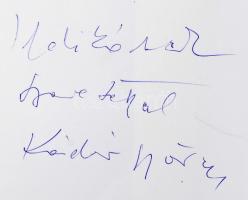 Ildikónak
szeretettel
Kádár György